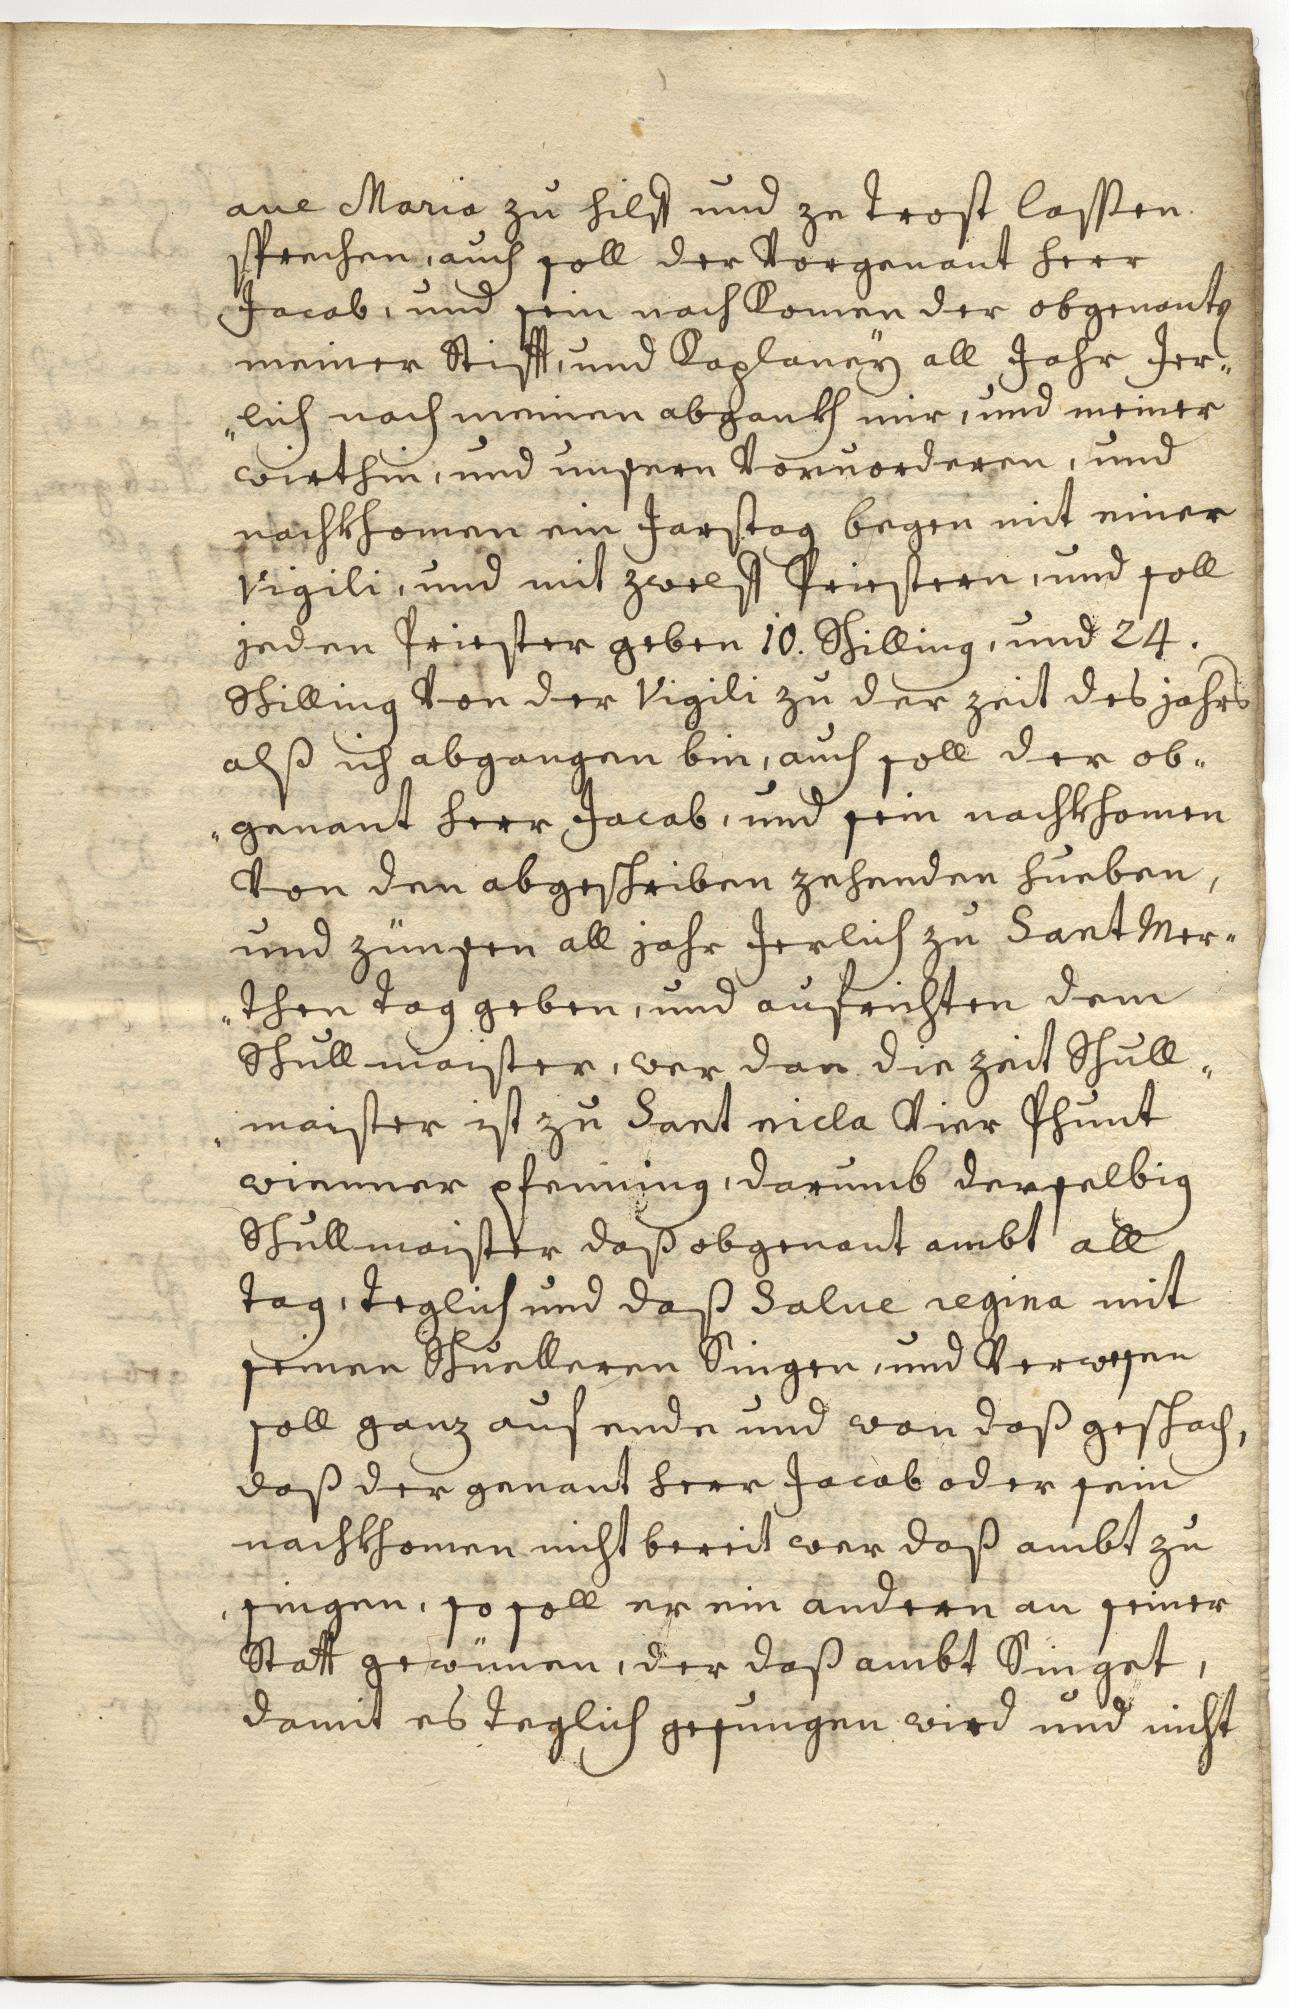 aue Maria zu hilff und ze trost lassen
sprechen, auch soll der Vorgenant herr
Jacob, und sein nach komen der obgenanten
meiner Stifft, und Kaplaneÿ all Jahr Jer„
„lich nach meinen abgankh mir, und meiner
wirthin, und unsern Vorvorderen, und
nachkhomen ein Jarstag begen mit einer
Vigili, und mit zwelff Priestern, und soll
jeden Priester geben 10. Schilling, und 24.
Schilling Von der Vigili zu der zeit des jahrs
alß ich abgangen bin, auch soll der ob„
„genant herr Jacob, und sein nachkhomen
Von den abgeschriben zehenden hueben,
und zünsen all jahr Jerlich zu Sant Mer„
„then tag geben, und aufrichten dem
Schullmaister, wer dan die zeit Schull„
„maister ist zu Sant nicla Vier Phunt
wienner pfenning, darumb derselbig
Schullmaister daß obgenant ambt all
tag, teglich und daß Salue regina mit
seinen Schuelleren Singen, und Verwesen
soll ganz auf ende und wan daß geschach,
daß der genant herr Jacob oder sein
nachkhomen nicht bereit wer daß ambt zu
singen, so soll er ein andern an seiner
Statt gewünen, der daß ambt Singet,
damit es teglich gesungen wird und nicht